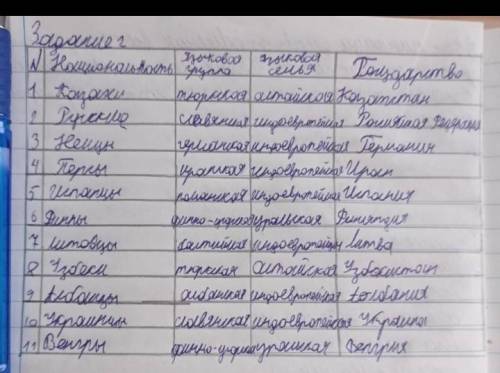 Задание 2
N Национальность языковая группа языковая семья Государство
1 Казахи тюркская алтайская Казахстан
2 Русские славянская индоевропейская Российская Федерация
3 Немцы германская индоевропейская Германия
4 Персы иранская индоевропейская Иран
5 Испанцы романская индоевропейская Испания
6 Финны финно-угорская уральская Финляндия
7 Литовцы балтийская индоевропейская Литва
8 Узбеки тюркская Алтайская Узбекистан
9 Албанцы албанская индоевропейская Албания
10 Украинцы славянская индоевропейская Украина
11 Венгры финно-угорская уральская Венгрия